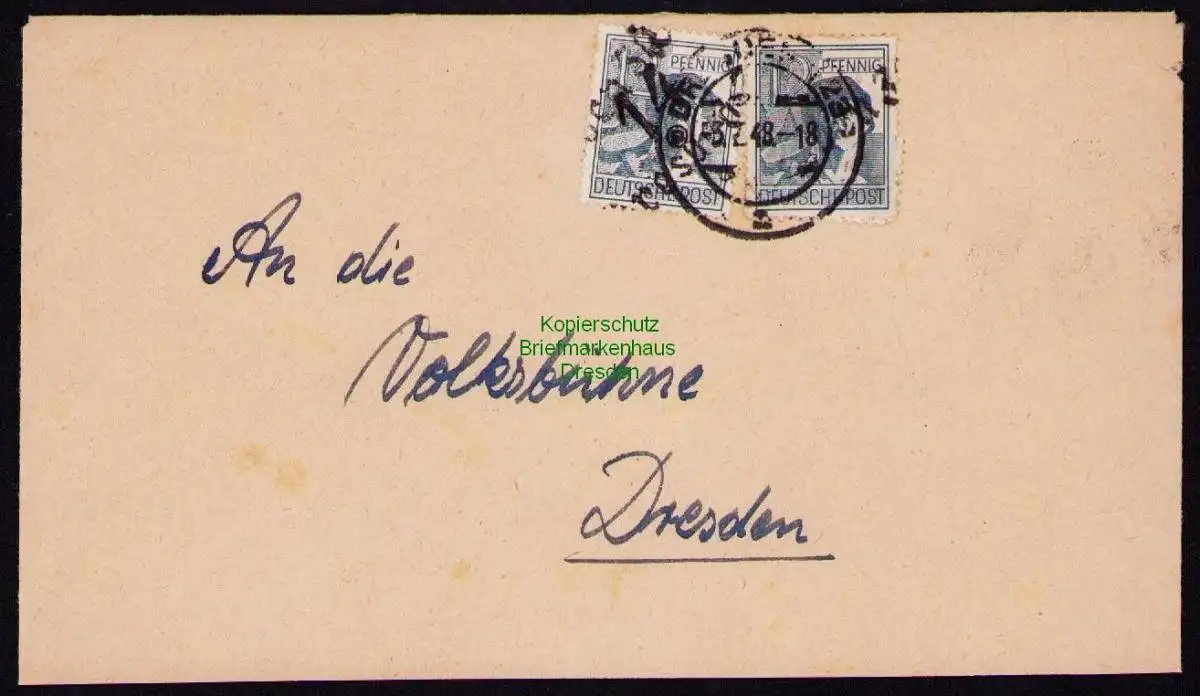 PFENNIG PFENNIG
48.-18
DEUTSCHE POST DEUTSCHE POST
An die
Kopierschutz
Briefmarkenhaus
Dresden
Volksbühne
Dresden